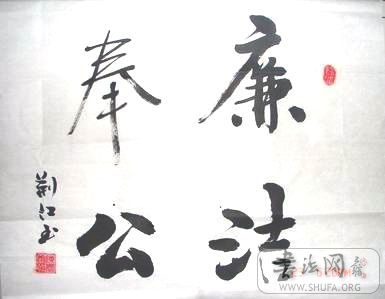 廉洁
奉公
荆江玉
书法网
WWW.SHUFA.ORG